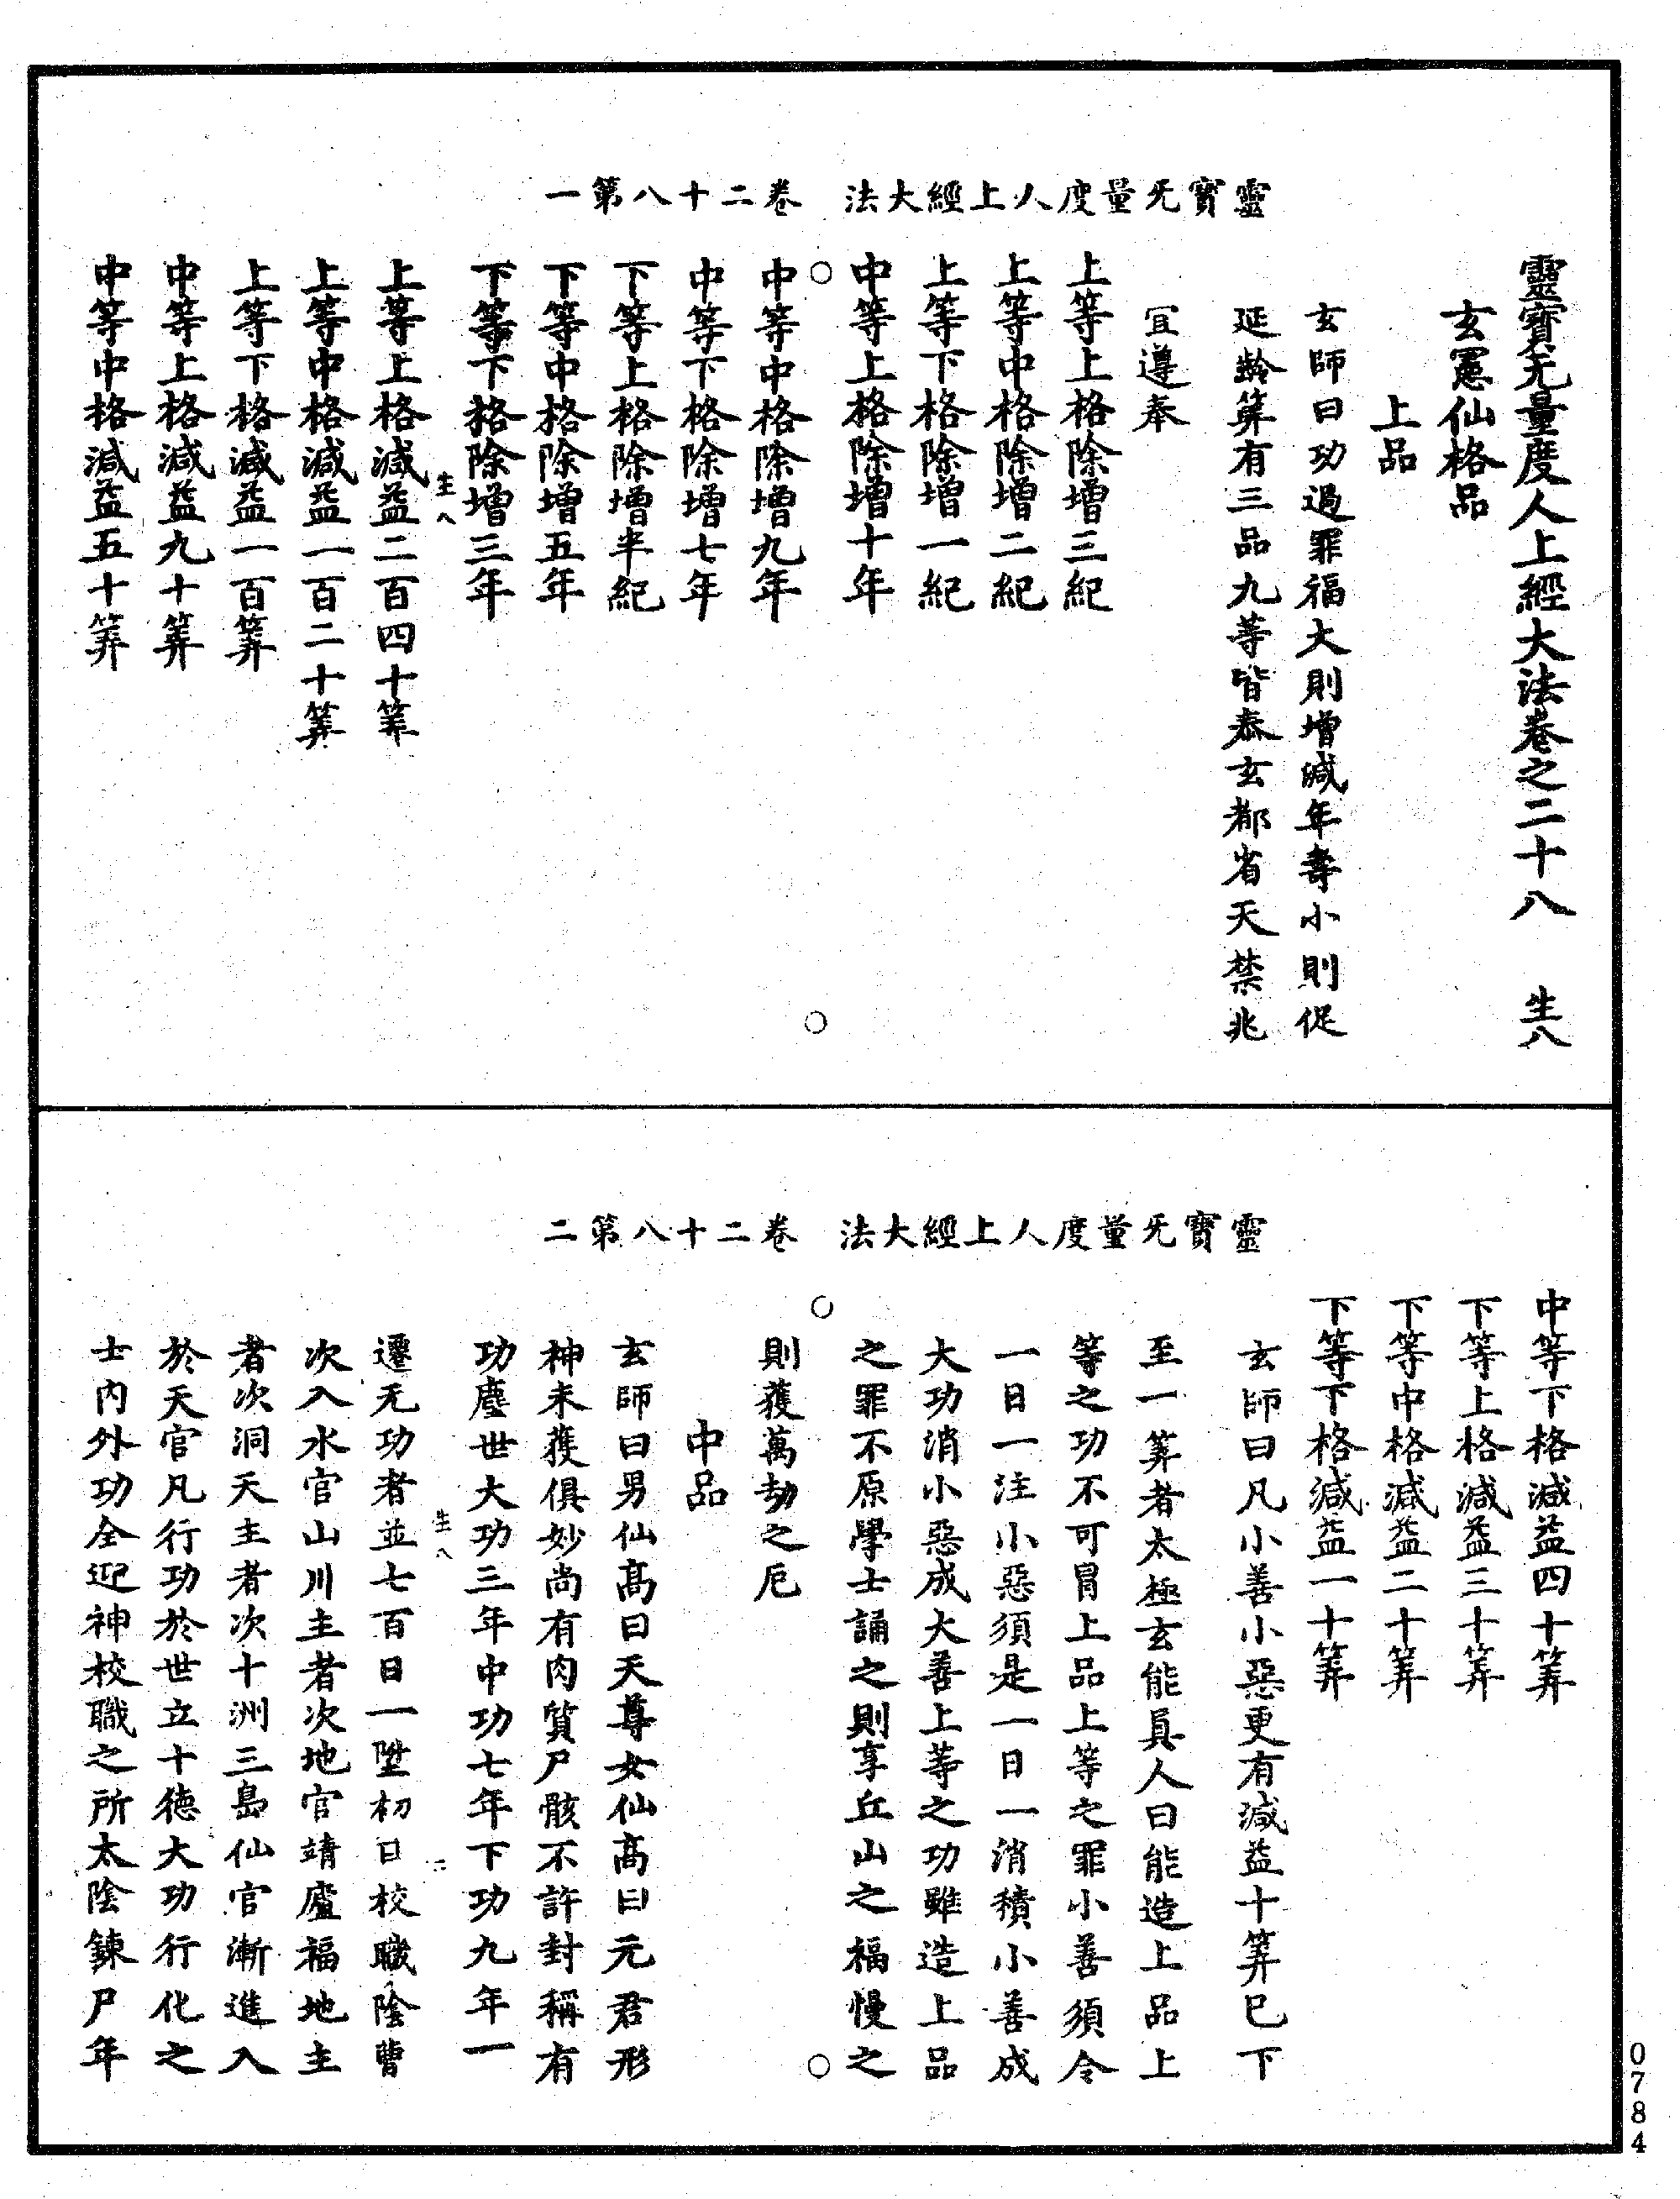 靈寶无量度人上經大法　卷二十八第一
靈寶无量度人上經大法卷之二十八　生八
玄憲仙格品
上品
玄師曰功過罪福大則增減年壽小則促
延齡筭有三品九等皆忝玄都省天禁兆
宜遵奉
上等上格除增三紀
上等中格除增二紀
上等下格除增一紀
中等上格除增十年
中等中格除增九年
中等下格除增七年
下等上格除增半紀
下等中格除增五年
下等下格除增三年
生八
上等上格減益二百四十筭
上等中格減益一百二十筭
上等下格減益一百筭
中等上格減益九十筭
中等中格減益五十筭
靈寶无量度人上經大法　卷二十八第二
中等下格減益四十筭
下等上格減益三十筭
下等中格減益二十筭
下等下格減益一十筭
玄師曰凡小善小惡更有減益十筭巳下
至一筭者太極玄能真人曰能造上品上
等之功不可冒上品上等之罪小善須令
一日一注小惡須是一日一消積小善成
大功消小惡成大善上等之功雖造上品
之罪不原學士誦之則享丘山之福慢之
則獲萬劫之厄
中品
玄師曰男仙高曰天尊女仙高曰元君形
神未獲俱妙尚有肉質尸骸不許封稱有
功塵世大功三年中功七年下功九年一
生八　二
遷无功者並七百日一陞初日校職陰曹
次入水官山川主者次地官靖廬福地主
者次洞天主者次十洲三島仙官漸進入
於天官凡行功於世立十德大功行化之
士內外功全迎神校職之所太陰鍊尸年
0784